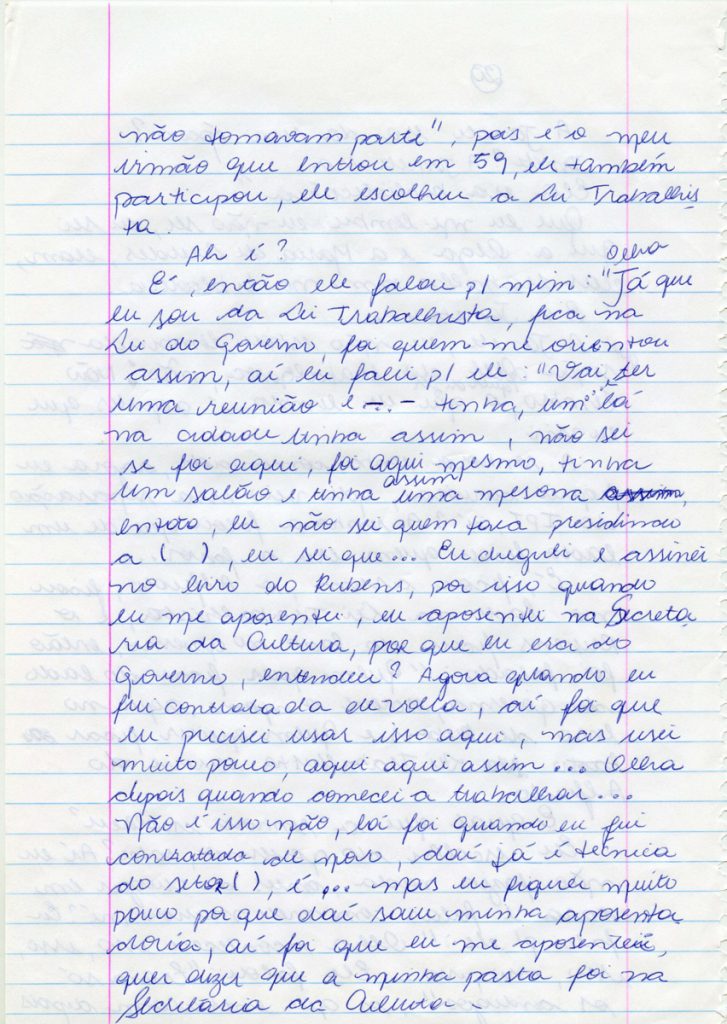 20
não tomavam parte", pois é o meu
irmão que entrou em 59, ele também
participou, ele escolheu a Lei Trabalhis
ta.
Ah é?
É, então ele falou p/ mim: "Olha Já que
eu sou da Lei Trabalhista, fica na
Lei do Governo, foi quem me orientou
assim, aí eu falei p/ ele: "Vai ter
uma reunião e -.- tinha, um lá
na cidade tinha assim, não sei
se foi aqui, foi aqui mesmo, tinha
um salão e tinha assim uma mesona assim,
então, eu não sei quem tava presidindo
a ( ), eu sei que... Eu cheguei e assinei
no livro do Rubens, por isso quando
eu me aposentei, eu aposentei na Secreta
ria da Cultura, porque eu era do
Governo, entendeu? Agora quando eu
fui contratada de volta, aí foi que
eu precisei usar isso aqui, mas usei
muito pouco, aqui aqui assim... Olha
depois quando comecei a trabalhar...
Não é isso não, lá foi quando eu fui
contratada de novo, daí já é técnica
do setor ( ), é... mas eu fiquei muito
pouco porque daí saiu minha aposenta
doria, aí foi que eu me aposentei,
quer dizer que a minha pasta foi na
Secretaria da Cultura.